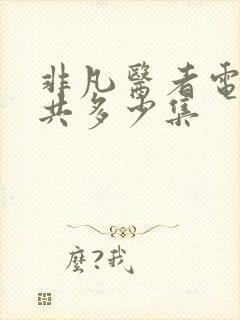 非凡醫者電
共多少集
麼?我